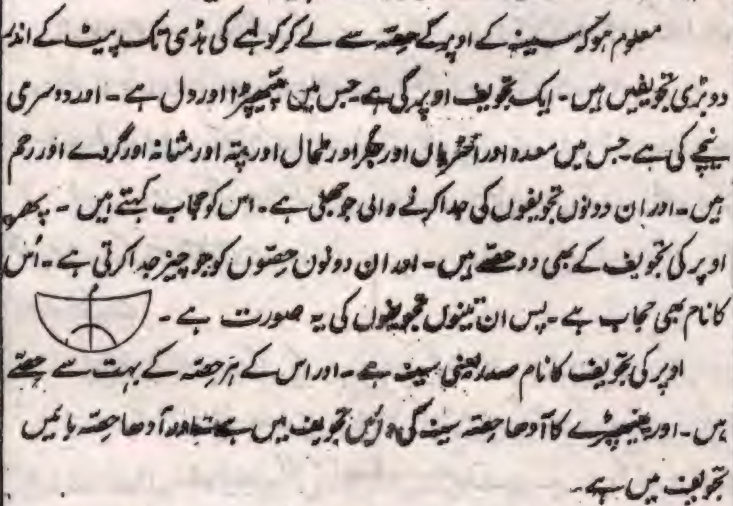 معلوم ہوکہ سینہ کے اوپر کے حصّہ سے لے کر کولہے کی ہڈی تک پیٹ کے اندر
دو بڑی تجویفیں ہیں۔ ایک تجویف اوپر کی ہے جس میں پھیپھڑا اور دل ہے۔ اور دوسری
نیچے کی ہے جس میں معدہ اور انتڑیاں اور جگر اور طحال اور پتہ اور مثانہ اور گردے اور رحم
ہیں۔ اور ان دونوں تجویفوں کی جدا کرنے والی جو جھلی ہے۔ اس کو حجاب کہتے ہیں۔ پھر
اوپر کی تجویف کے بھی دو حصّے ہیں۔ اور ان دونوں حصّوں کو جو چیز جدا کرتی ہے۔ اُس
کا نام بھی حجاب ہے۔ پس ان تینوں تجویفوں کی یہ صورت ہے۔
اوپر کی تجویف کا نام صدر یعنی سینہ ہے۔ اور اس کے ہر حصّہ کے بہت سے حصّے
ہیں۔ اور پھیپھڑے کا آدھا حصّہ سینہ کی دائیں تجویف میں ہے اور آدھا حصّہ بائیں
تجویف میں ہے۔